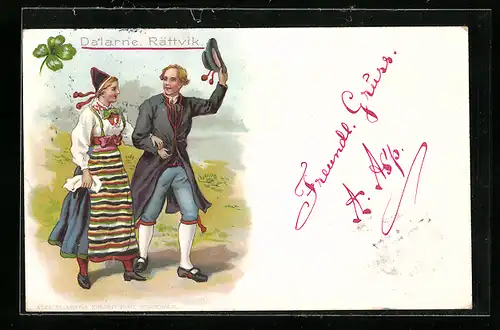 Dalarne. Rättvik.
Freundl. Gruss.
A. Asp.